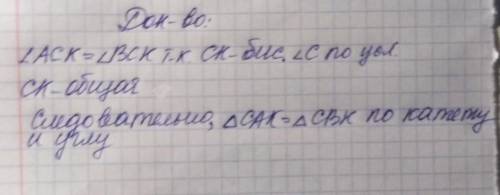 Док-во:
∠ACK=∠BCK т.к CK-бис. ∠C по усл.
CK-общая
Следовательно, △CAK=△CBK по катету
и углу